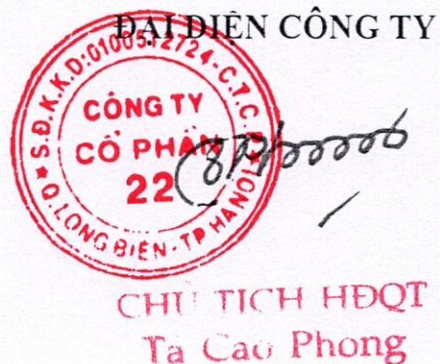 ĐẠI DIỆN CÔNG TY
S.Đ.K.K.D:0100512724-C.T.C.P
CÔNG TY
CỔ PHẦN
22
Q.LONG BIÊN-TP HÀ NỘI
CHỦ TỊCH HĐQT
Tạ Cao Phong